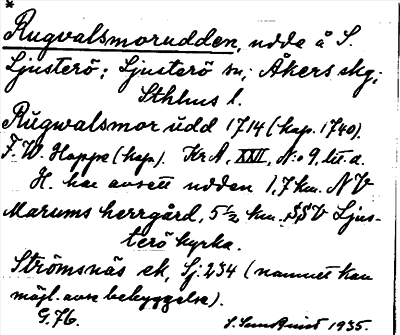 *
Rugvalsmorudden, udde å S.
Ljusterö; Ljusterö sn; Åkers skg;
Sthlms l.
Rúgwalsmor udd 1714 (kop. 1740).
F. W. Hoppe (kop.). Kr A, XXII, N:o 9, litt. a.
H. har avsett udden 1,7 km. NV
Marums herrgård, 5½ km. SSV Ljus-
terö kyrka.
Strömsnäs ek, Sj. 234 (namnet kan
möjl. avse bebyggelse).
G.76.
1935.